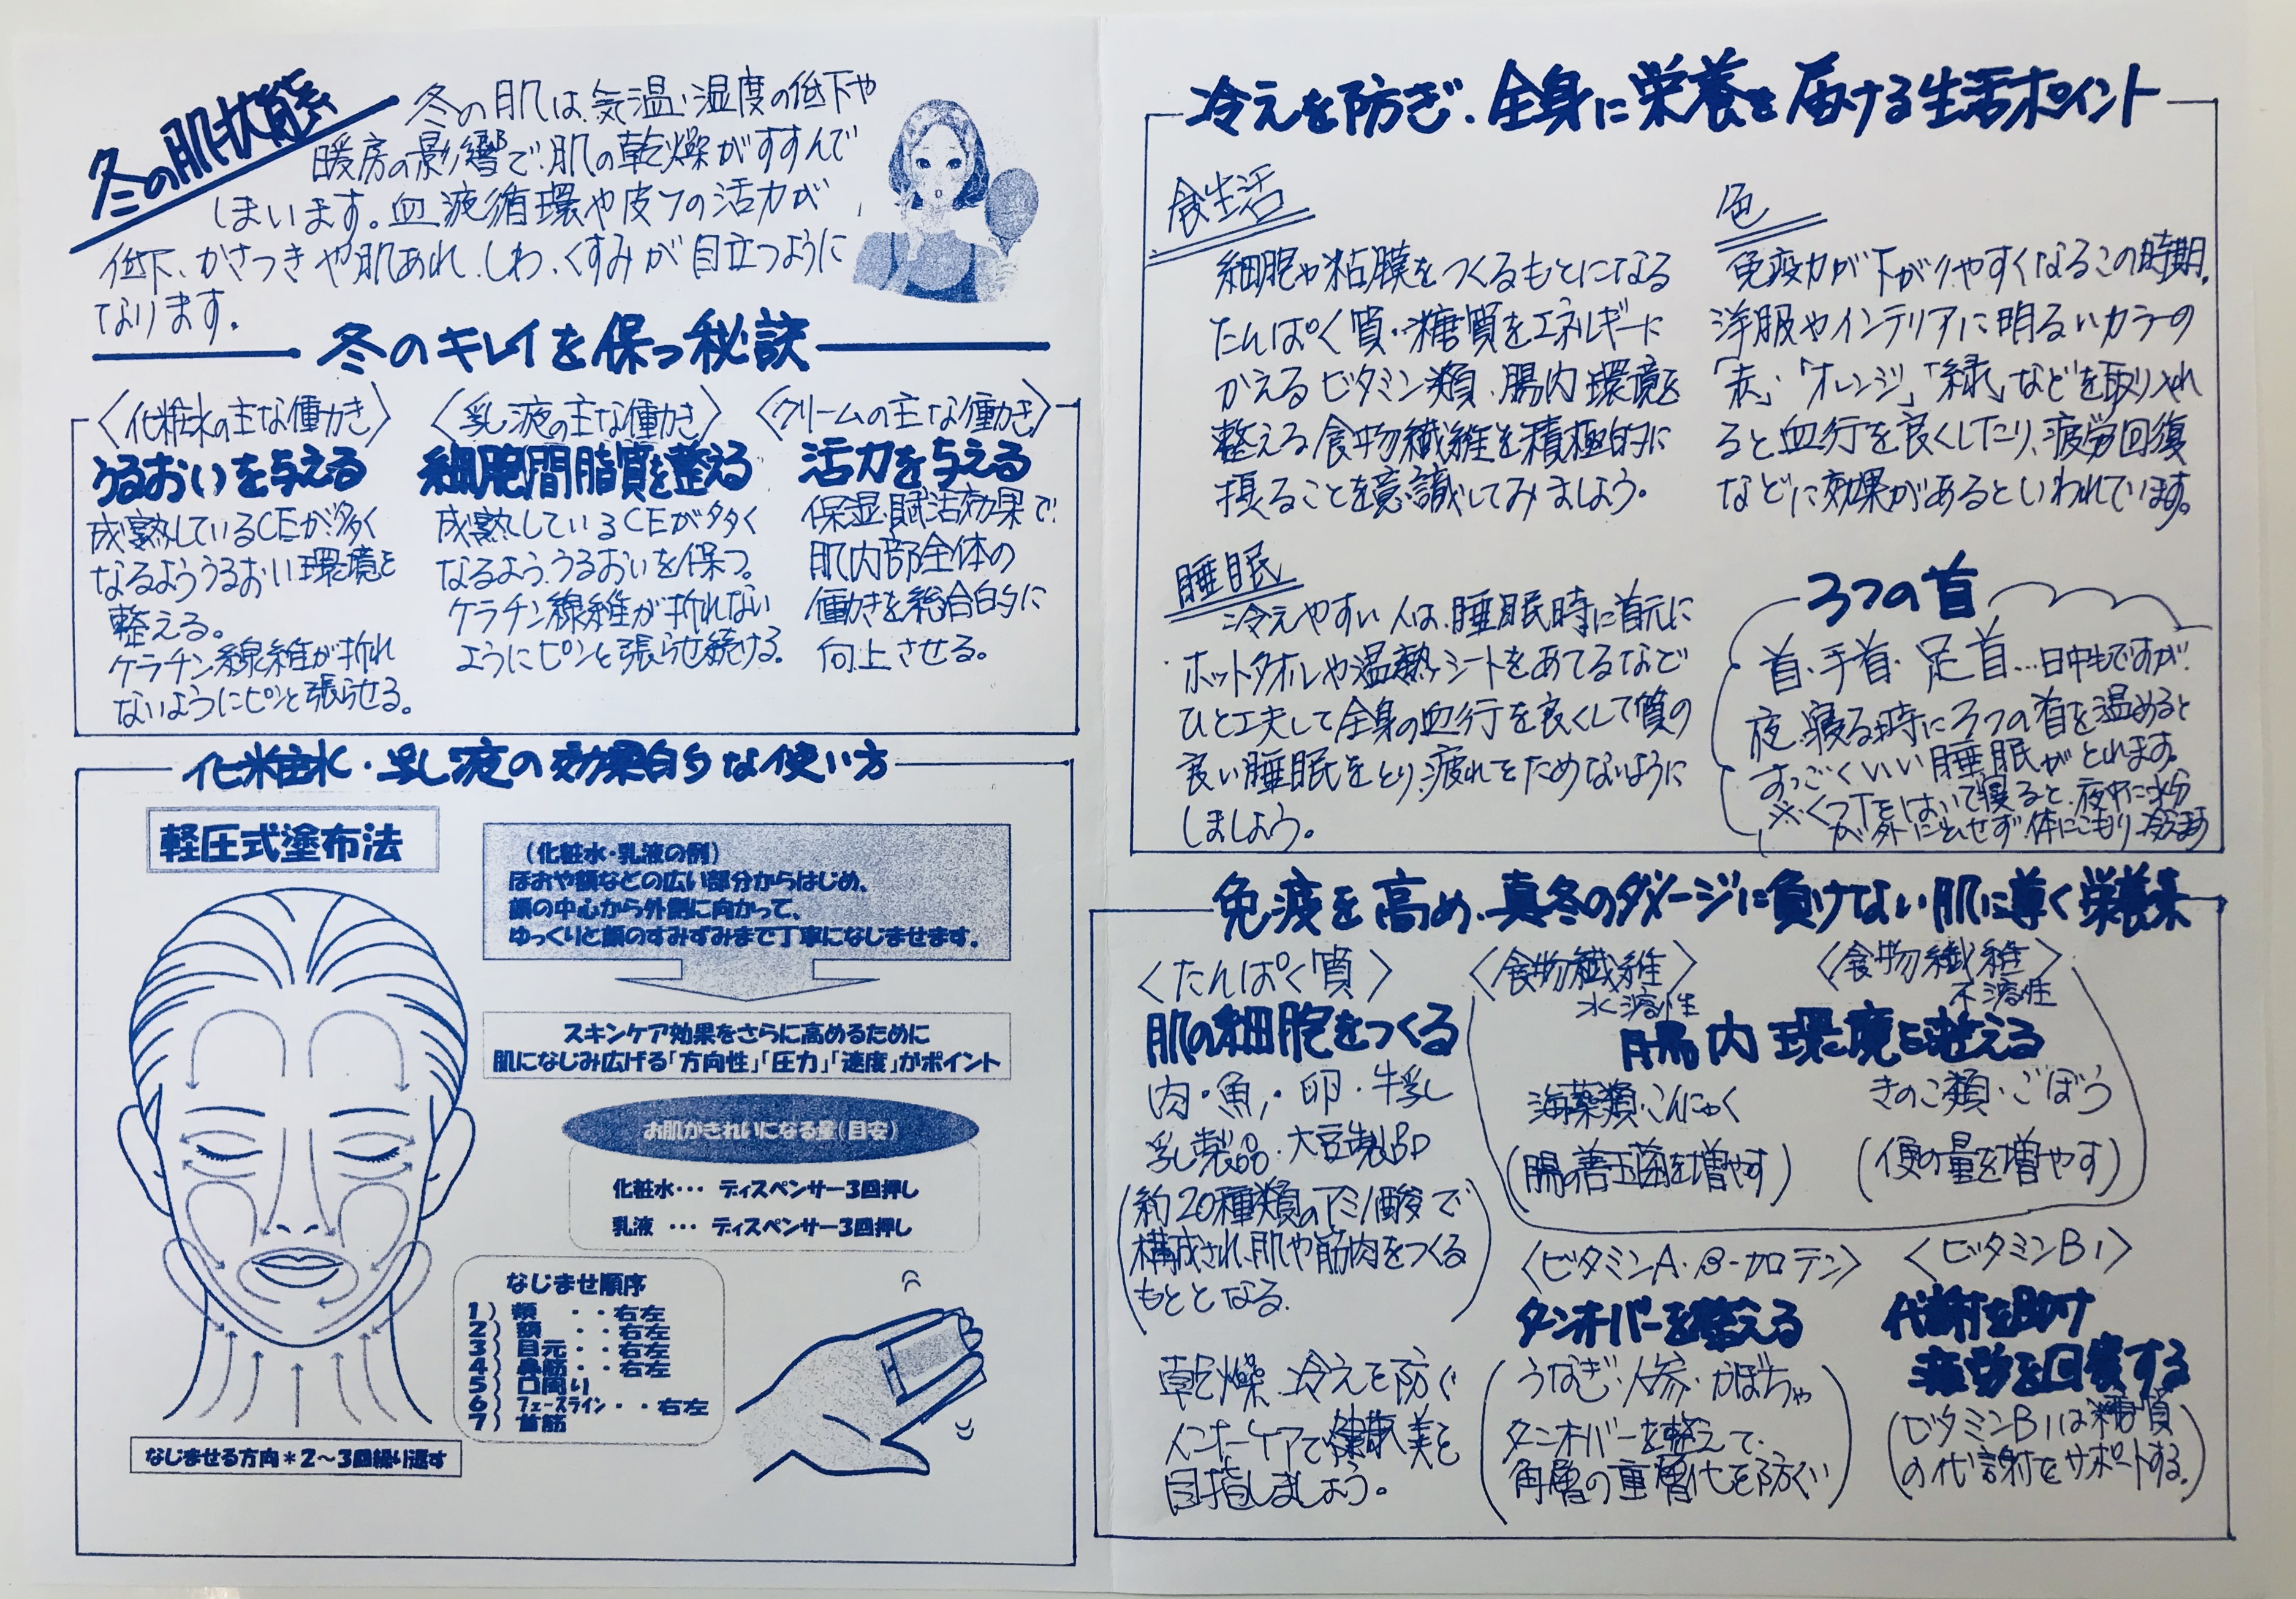 冬の肌状態
冬の肌は、気温・湿度の低下や
暖房の影響で、肌の乾燥がすすんで
しまいます。血液循環や皮フの活力が
低下、かさつきや肌あれ、しわ、くすみが目立つように
なります。
冬のキレイを保つ秘訣
〈化粧水の主な働き〉
うるおいを与える
成熟しているCEが多く
なるよううるおい環境を
整える。
ケラチン線維が折れ
ないようにピンと張らせる。
〈乳液の主な働き〉
細胞間脂質を整える
成熟しているCEが多く
なるよう、うるおいを保つ。
ケラチン線維が折れない
ようにピンと張らせ続ける。
〈クリームの主な働き〉
活力を与える
保湿・賦活効果で、
肌内部全体の
働きを総合的に
向上させる。
化粧水・乳液の効果的な使い方
軽圧式塗布法
(化粧水・乳液の例)
ほおや額などの広い部分からはじめ、
顔の中心から外側に向かって、
ゆっくりと顔のすみずみまで丁寧になじませます。
スキンケア効果をさらに高めるために
肌になじみ広げる「方向性」「圧力」「速度」がポイント
お肌がきれいになる量(目安)
化粧水・・・ ディスペンサー3回押し
乳液 ・・・ ディスペンサー3回押し
なじませ順序
1) 頬 ・・右左
2) 額 ・・右左
3) 目元・・右左
4) 鼻筋・・右左
5) 口周り
6) フェースライン・・右左
7) 首筋
なじませる方向*2〜3回繰り返す
冷えを防ぎ、全身に栄養を届ける生活ポイント
食生活
細胞や粘膜をつくるもとになる
たんぱく質・糖質をエネルギーに
かえるビタミン類、腸内環境を
整える食物繊維を積極的に
摂ることを意識してみましょう。
色
免疫力が下がりやすくなるこの時期。
洋服やインテリアに明るいカラーの
「赤」「オレンジ」「緑」などを取り入れ
ると血行を良くしたり、疲労回復
などに効果があるといわれています。
睡眠
冷えやすい人は、睡眠時に首元に
ホットタオルや温熱シートをあてるなど
ひと工夫して全身の血行を良くして質の
良い睡眠をとり、疲れをためないように
しましょう。
3つの首
首・手首・足首…日中もですが、
夜、寝る時に3つの首を温めると
すっごくいい睡眠がとれます。
※くつ下をはいて寝ると、夜中に水分
が外に出せず、体にこもり、冷えます
免疫を高め、真冬のダメージに負けない肌に導く栄養素
〈たんぱく質〉
肌の細胞をつくる
肉・魚・卵・牛乳
乳製品・大豆製品
(約20種類のアミノ酸で
構成され、肌や筋肉をつくる
もととなる。)
〈食物繊維〉
水溶性
〈食物繊維〉
不溶性
腸内環境を整える
海藻類・こんにゃく
(腸の善玉菌を増やす)
きのこ類・ごぼう
(便の量を増やす)
〈ビタミンA・β-カロテン〉
ターンオーバーを整える
(うなぎ・人参・かぼちゃ
ターンオーバーを整えて、
角層の重層化を防ぐ)
〈ビタミンB1〉
代謝を助け
疲労を回復する
(ビタミンB1は糖質
の代謝をサポートする。)
乾燥、冷えを防ぐ
インナーケアで健康美を
目指しましょう。